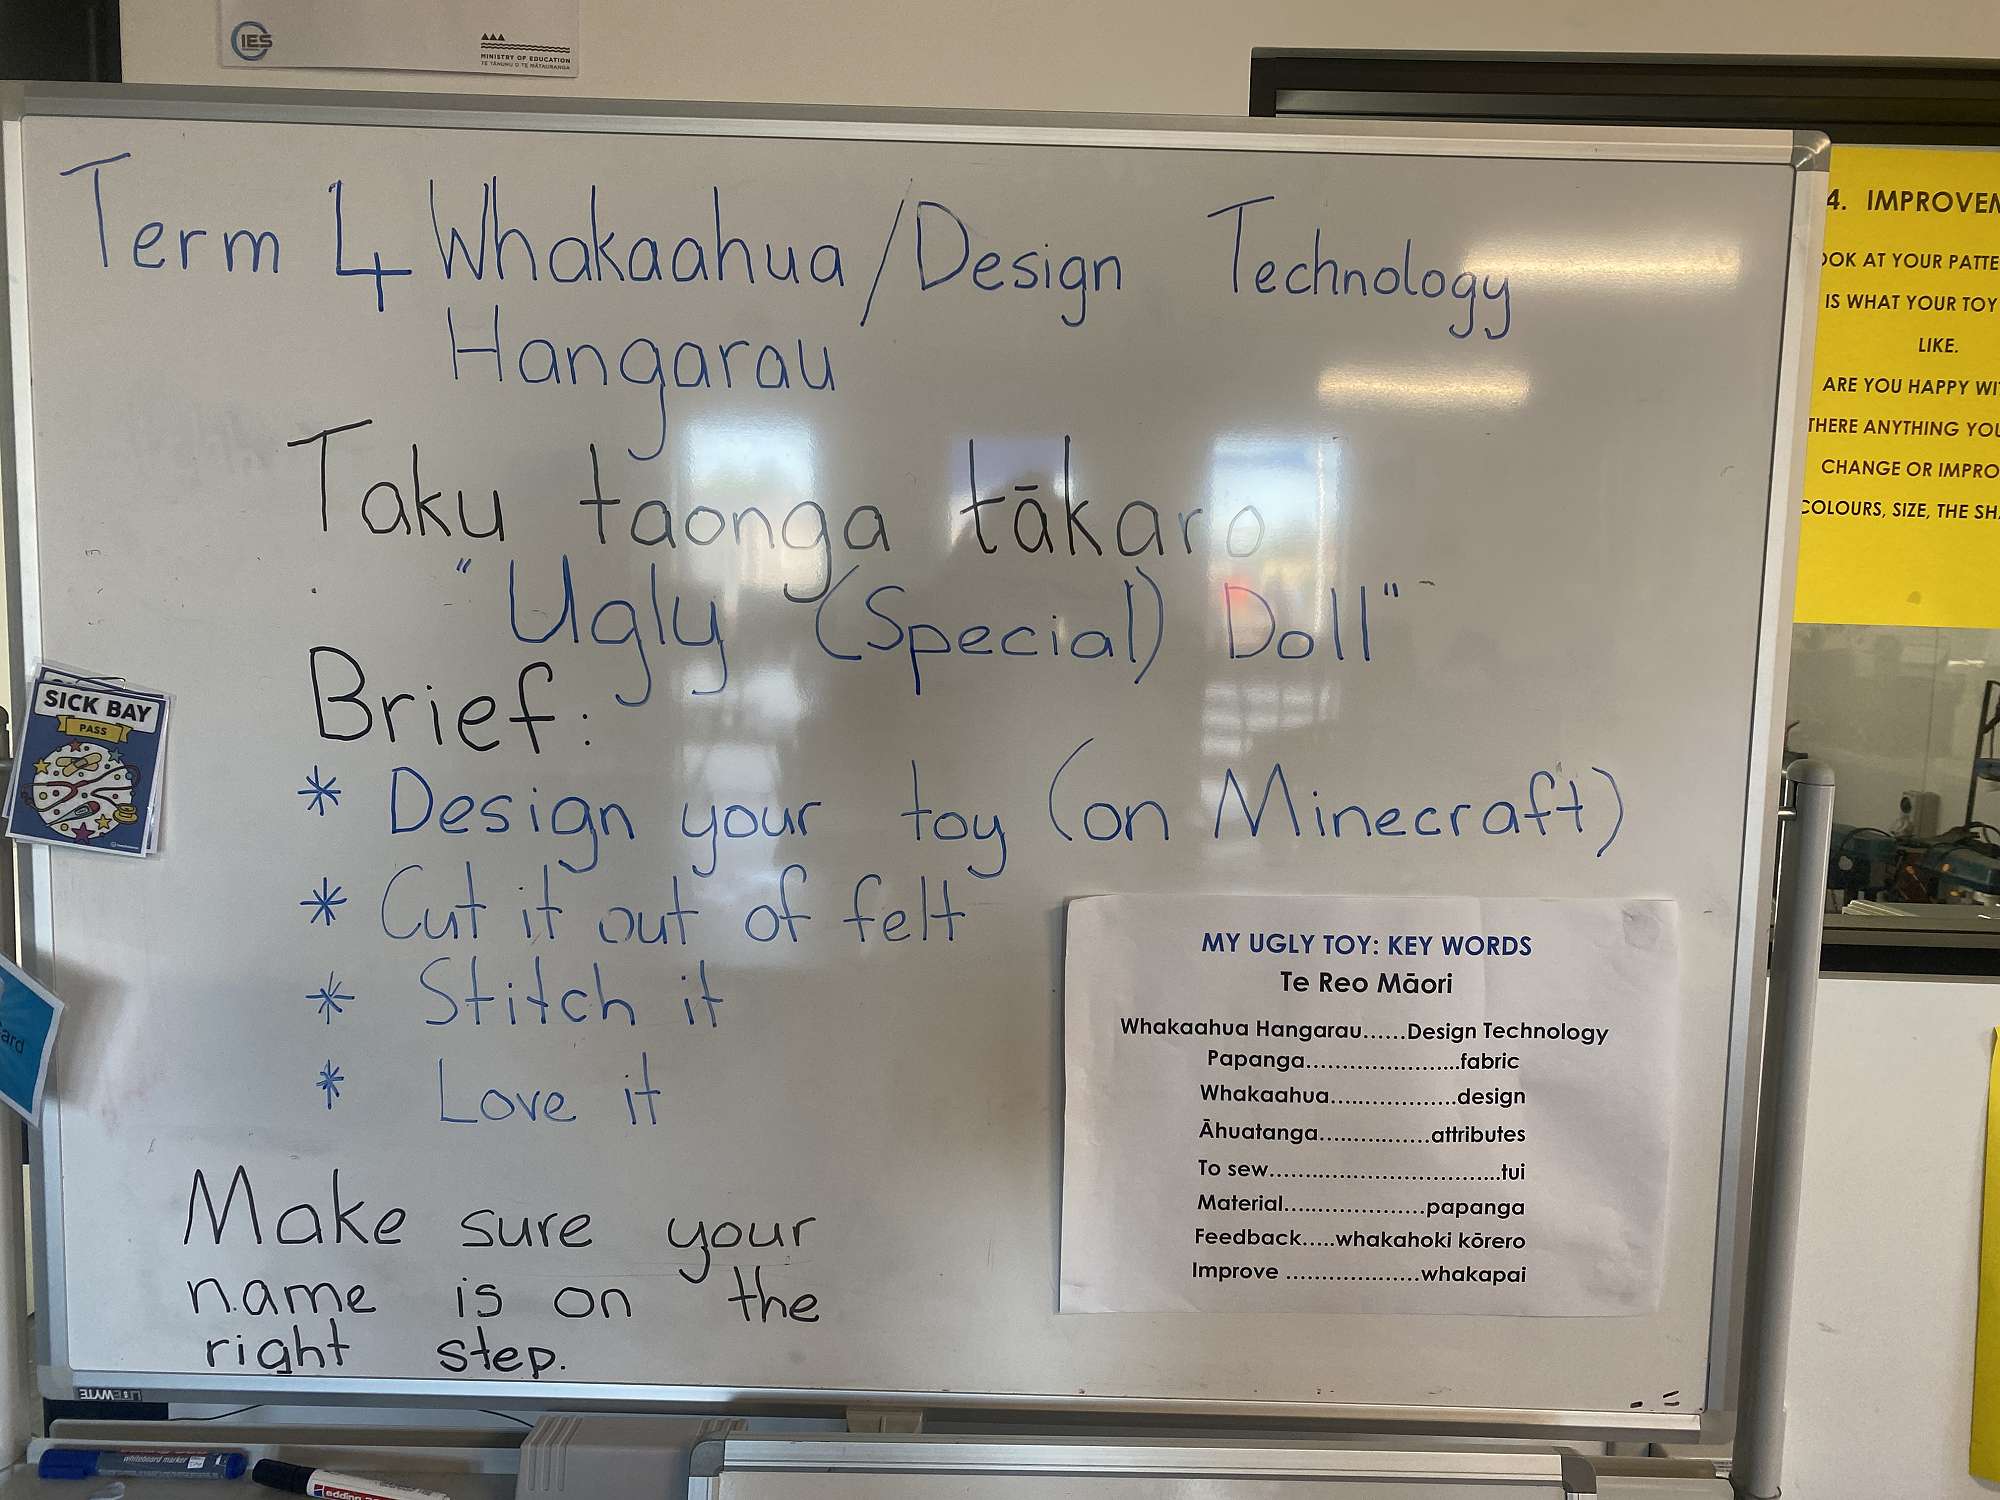 IES
MINISTRY OF EDUCATION
TE TĀHUHU O TE MĀTAURANGA
Term 4 Whakaahua/Design Technology
Hangarau
Taku taonga tākaro
"Ugly (Special) Doll"
Brief:
* Design your toy (on Minecraft)
* Cut it out of felt
* Stitch it
* Love it
Make sure your
name is on the
right step.
MY UGLY TOY: KEY WORDS
Te Reo Māori
Whakaahua Hangarau......Design Technology
Papanga......................fabric
Whakaahua..................design
Āhuatanga................attributes
To sew.................................tui
Material....................papanga
Feedback.....whakahoki kōrero
Improve ...................whakapai
SICK BAY
PASS
4. IMPROVEM
OOK AT YOUR PATTE
IS WHAT YOUR TOY
LIKE.
ARE YOU HAPPY WI
THERE ANYTHING YOU
CHANGE OR IMPRO
COLOURS, SIZE, THE SH
ard
whiteboard marker
edding